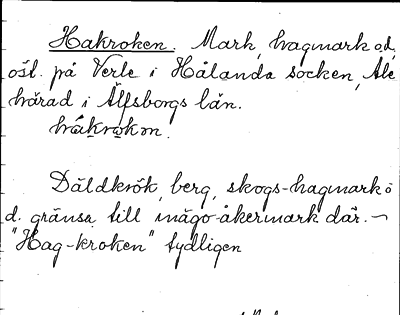 Hakroken. Mark, hagmark od,
östl. på Verle i Hålanda socken, Ale
härad i Älfsborgs län.
håkrokən.
Däldkrök, berg, skogs-hagmark o
d. gränsa till inägo-åkermark där. –
"Hag-kroken" tydligen